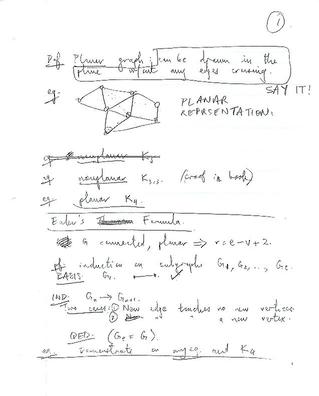 ①
Def Planar graph : can be drawn in the
plane w/out any edges crossing.
SAY IT!
eg:
PLANAR
REPRESENTATION.
eg nonplanar K₅
eg nonplanar K₃,₃. (proof in book)
eg planar K₄.
Euler's Formula.
G connected, planar ⇒ r = e - v + 2.
Pf induction on subgraphs G₁, G₂, ..., Gₑ.
BASIS: G₁. ✓
IND: Gₙ → Gₙ₊₁.
Two cases: ① New edge touches no new vertices
② " " a new vertex.
QED. (Gₑ = G).
Demonstrate on any eg. K₄